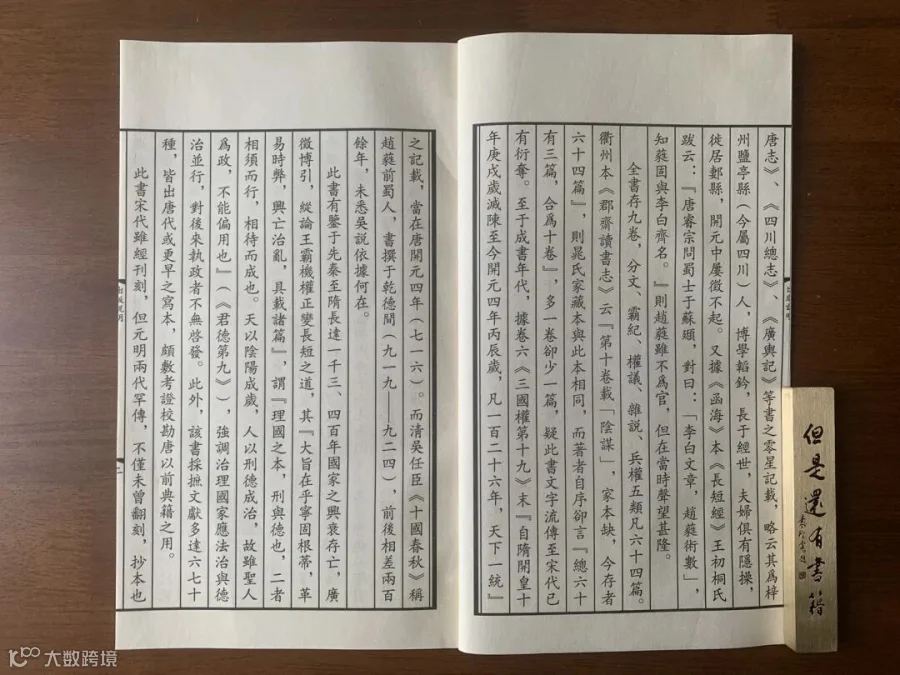 唐志》、《四川總志》、《廣輿記》等書之零星記載，略云其爲梓
州鹽亭縣（今屬四川）人，博學韜鈐，長于經世，夫婦俱有隱操，
徙居郪縣，開元中屢徵不起。又據《函海》本《長短經》王初桐氏
跋云：『唐睿宗問蜀士于蘇頲，對曰：「李白文章，趙蕤術數」，
知蕤固與李白齊名。』則趙蕤雖不爲官，但在當時聲望甚隆。
全書存九卷，分文、霸紀、權議、雜説、兵權五類凡六十四篇。
衢州本《郡齋讀書志》云『第十卷載「陰謀」，家本缺，今存者
六十四篇』，則晁氏家藏本與此本相同，而著者自序卻言『總六十
有三篇，合爲十卷』，多一卷卻少一篇，疑此書文字流傳至宋代已
有衍奪。至于成書年代，據卷六《三國權第十九》末『自隋開皇十
年庚戌歲滅陳至今開元四年丙辰歲，凡一百二十六年，天下一統』
之記載，當在唐開元四年（七一六）。而清吳任臣《十國春秋》稱
趙蕤前蜀人，書撰于乾德間（九一九——九二四），前後相差兩百
餘年，未悉吳説依據何在。
此書有鑒于先秦至隋長達一千三、四百年國家之興衰存亡，廣
徵博引，縱論王霸機權正變長短之道，其『大旨在乎寧固根蒂，革
易時弊，興亡治亂，具載諸篇』，謂『理國之本，刑與德也，二者
相須而行，相待而成也。天以陰陽成歲，人以刑德成治，故雖聖人
爲政，不能偏用也』（《君德第九》），強調治理國家應法治與德
治並行，對後來執政者不無啓發。此外，該書採摭文獻多達六七十
種，皆出唐代或更早之寫本，頗數考證校勘唐以前典籍之用。
此書宋代雖經刊刻，但元明兩代罕傳，不僅未曾翻刻，抄本也
出版説明
二
但是還有書籍
大数跨境